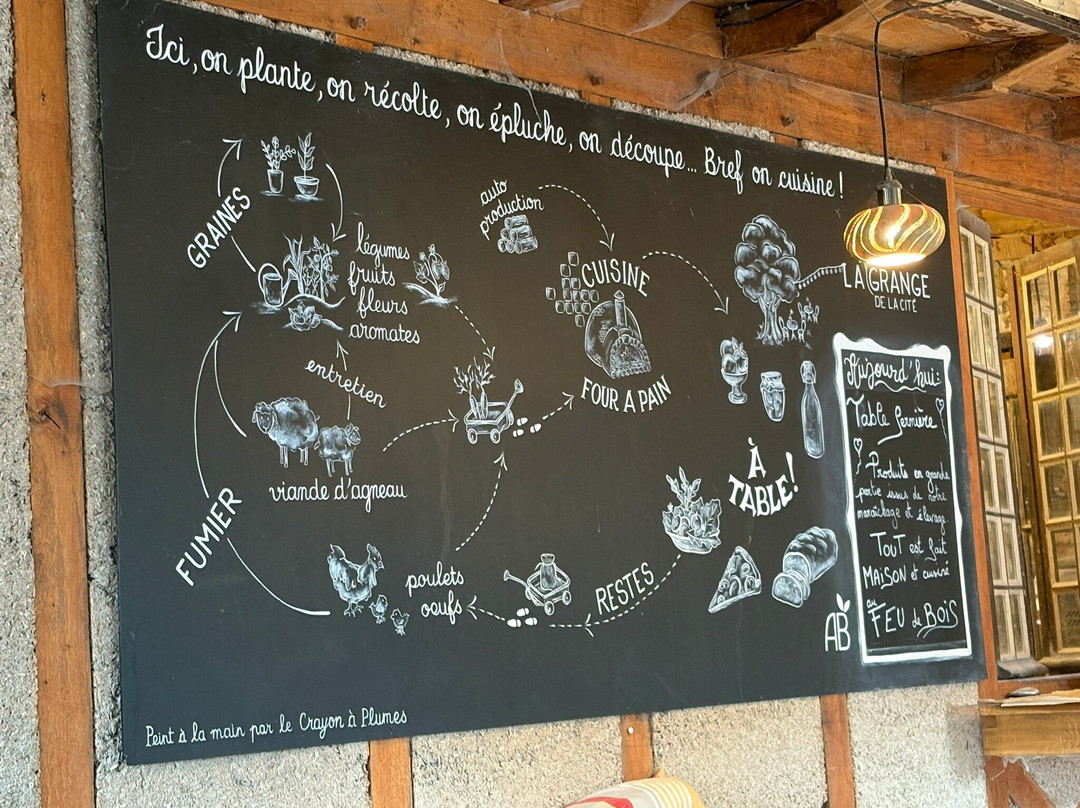 Ici, on plante, on récolte, on épluche, on découpe... Bref on cuisine !
GRAINES
légumes
fruits
fleurs
aromates
auto
production
CUISINE
FOUR A PAIN
LA GRANGE
DE LA CITÉ
entretien
viande d'agneau
FUMIER
poulets
oeufs
RESTES
À
TABLE!
Aujourd'hui:
Table fermière !
Produits en grande
partie issus de notre
maraîchage et élevage
TOUT est fait
MAISON et cuisiné
au
FEU de BOIS
AB
Peint à la main par le Crayon à Plumes